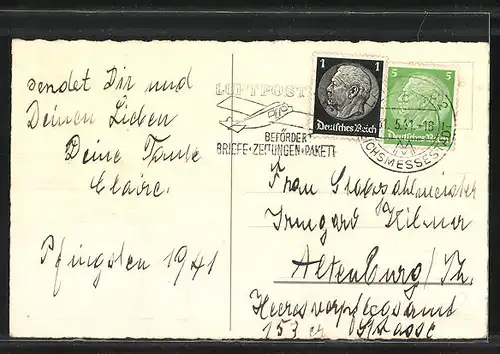 sendet Dir und
Deinen Lieben
Deine Tante
Claire.
Pfingsten 1941
LUFTPOST
BEFÖRDERT
BRIEFE·ZEITUNGEN·PAKETE
1 1
Deutsches Reich
5 5
Deutsches Reich
5.41.-18
CHSMESSES
Frau Stabszahlmeister
Irmgard Kilmar
Altenburg/Th.
Heeresverpflegsamt
153er Strasse